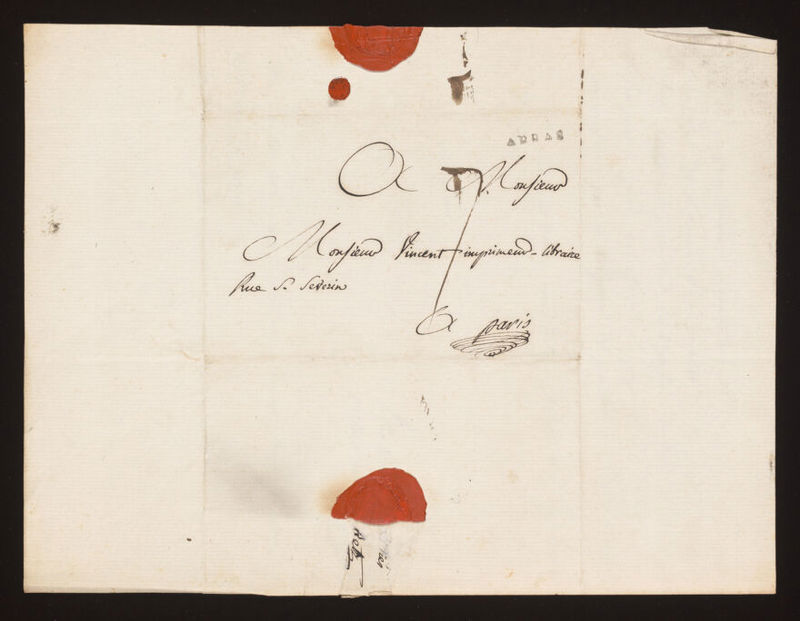 ARRAS
A Monsieur
Monsieur Vincent imprimeur-libraire
Rue St. Severin
A paris